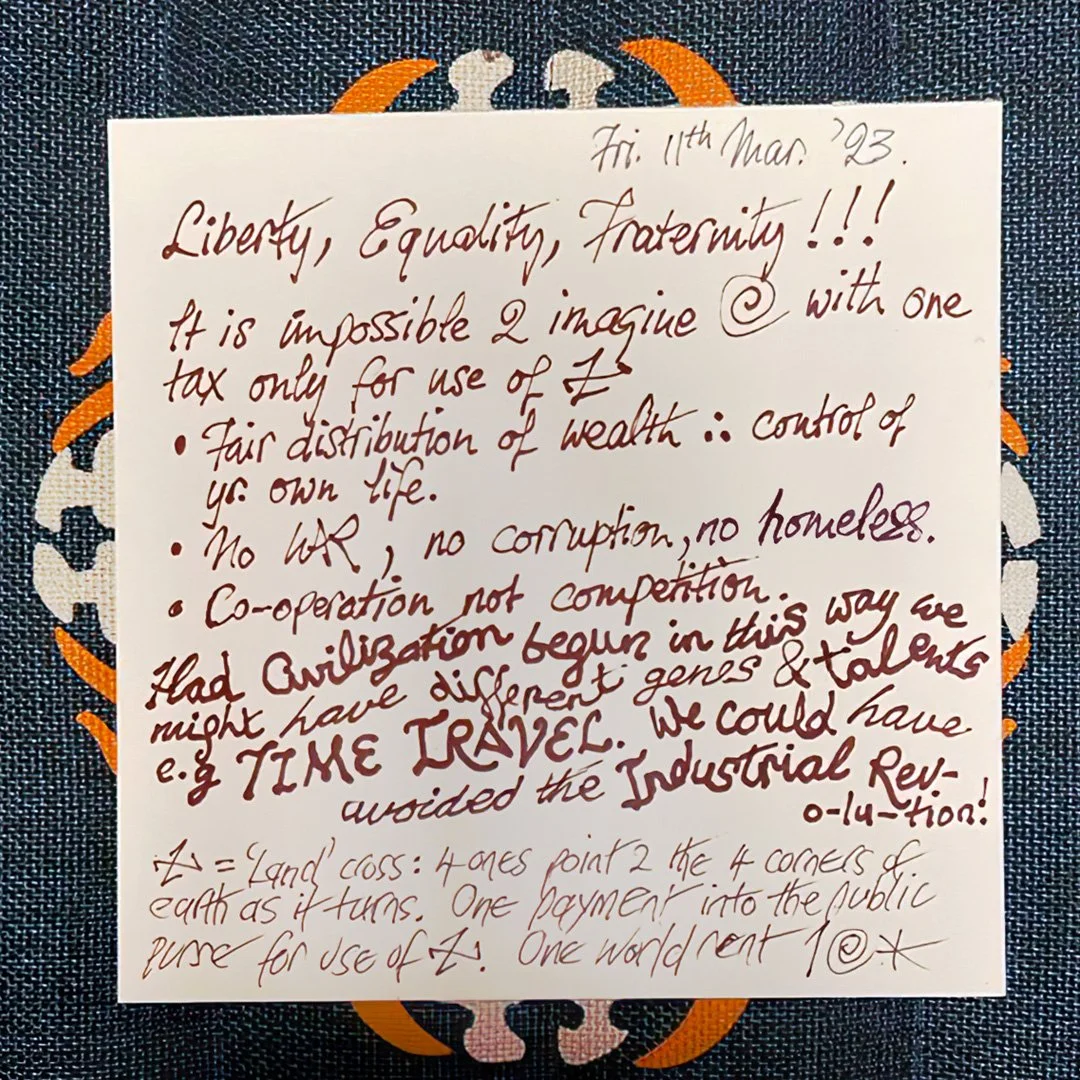 Fri. 11th Mar. '23.
Liberty, Equality, Fraternity!!!
It is impossible 2 imagine @ with one
tax only for use of
• Fair distribution of wealth ∴ control of
yr. own life.
• No WAR, no corruption, no homeless.
• Co-operation not competition.
Had Civilization begun in this way we
might have different genes & talents
e.g TIME TRAVEL. We could have
avoided the Industrial Rev-
o-lu-tion!
= 'Land' cross: 4 ones point 2 the 4 corners of
earth as it turns. One payment into the public
purse for use of . One world rent 1@*